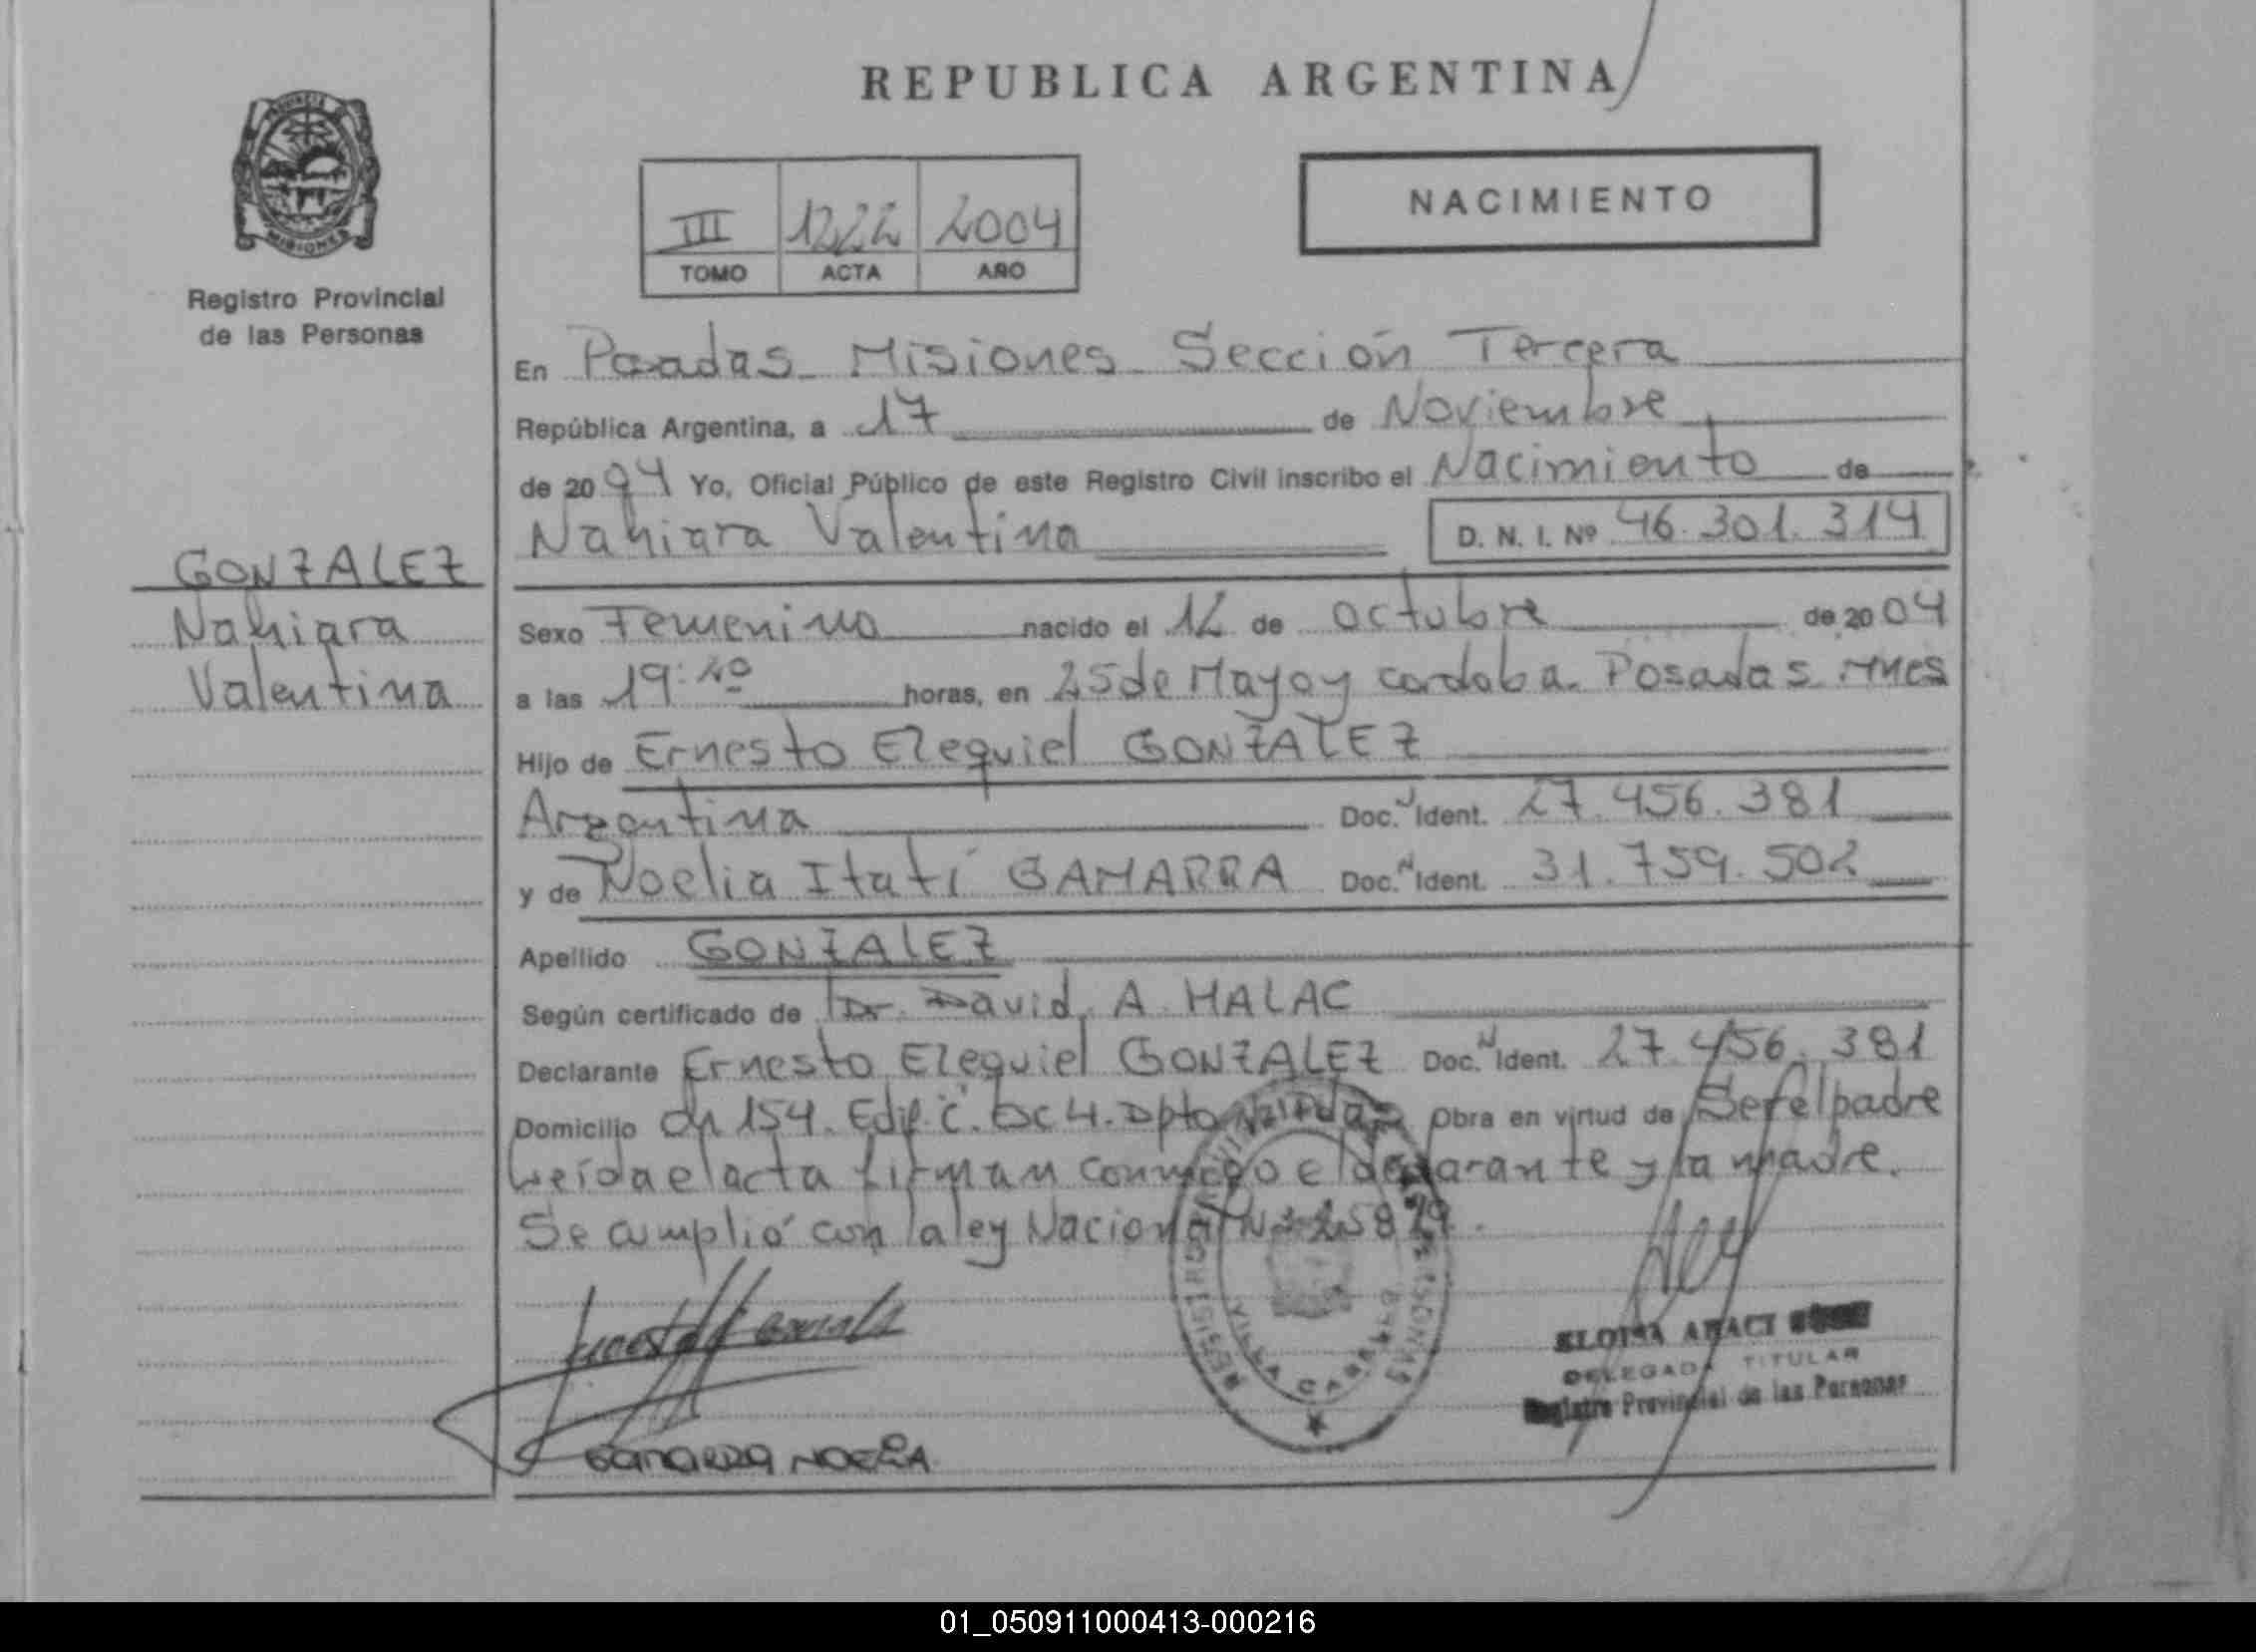 REPUBLICA ARGENTINA
NACIMIENTO
PROVINCIA
MISIONES
Registro Provincial
de las Personas
III 1222 2004
TOMO ACTA AÑO
En Posadas Misiones Sección Tercera
República Argentina, a 17 de Noviembre
de 2004 Yo, Oficial Público de este Registro Civil inscribo el Nacimiento de
Nahiara Valentina D. N. I. Nº 46.301.314
GONZALEZ
Nahiara
Valentina
Sexo Femenino nacido el 12 de octubre de 2004
a las 19:40 horas, en 25 de Mayo y cordoba. Posadas. Mnes
Hijo de Ernesto Ezequiel GONZALEZ
Argentina Doc. Ident. 27.456.381
y de Noelia Itatí GAMARRA Doc. Ident. 31.759.502
Apellido GONZALEZ
Según certificado de Dr. David A. MALAC
Declarante Ernesto Ezequiel GONZALEZ Doc. Ident. 27.456.381
Domicilio Ch 154. Edif. C. Esc 4. Dpto Obra en virtud de Ser el padre
Leída el acta firman conmigo el declarante y la madre.
Se cumplió con la ley Nacional Nº 25819.
VILLA CABELLO
ELOISA ARACI
DELEGADA TITULAR
Registro Provincial de las Personas
GAMARRA NOELIA
01_050911000413-000216